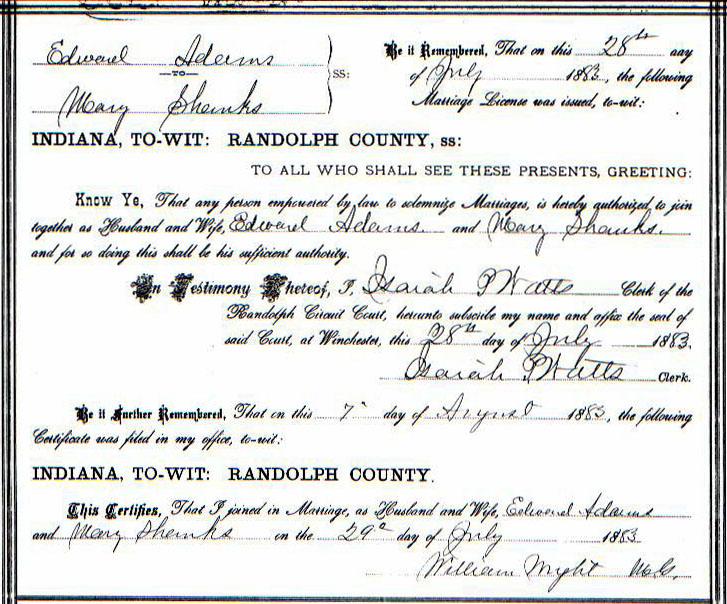 Edward Adams
—TO— SS:
Mary Shanks
Be it Remembered, That on this 28th day
of July 1883, the following
Marriage License was issued, to-wit:
INDIANA, TO-WIT: RANDOLPH COUNTY, ss:
TO ALL WHO SHALL SEE THESE PRESENTS, GREETING:
Know Ye, That any person empowered by law to solemnize Marriages, is hereby authorized to join
together as Husband and Wife, Edward Adams. and Mary Shanks.
and for so doing this shall be his sufficient authority.
In Testimony Whereof, I, Isaiah P Watts Clerk of the
Randolph Circuit Court, hereunto subscribe my name and affix the seal of
said Court, at Winchester, this 28th day of July 1883.
Isaiah P Watts Clerk.
Be it Further Remembered, That on this 7" day of August 1883, the following
Certificate was filed in my office, to-wit:
INDIANA, TO-WIT: RANDOLPH COUNTY.
This Certifies, That I joined in Marriage, as Husband and Wife, Edward Adams
and Mary Shanks on the 29 day of July 1883.
William Wright